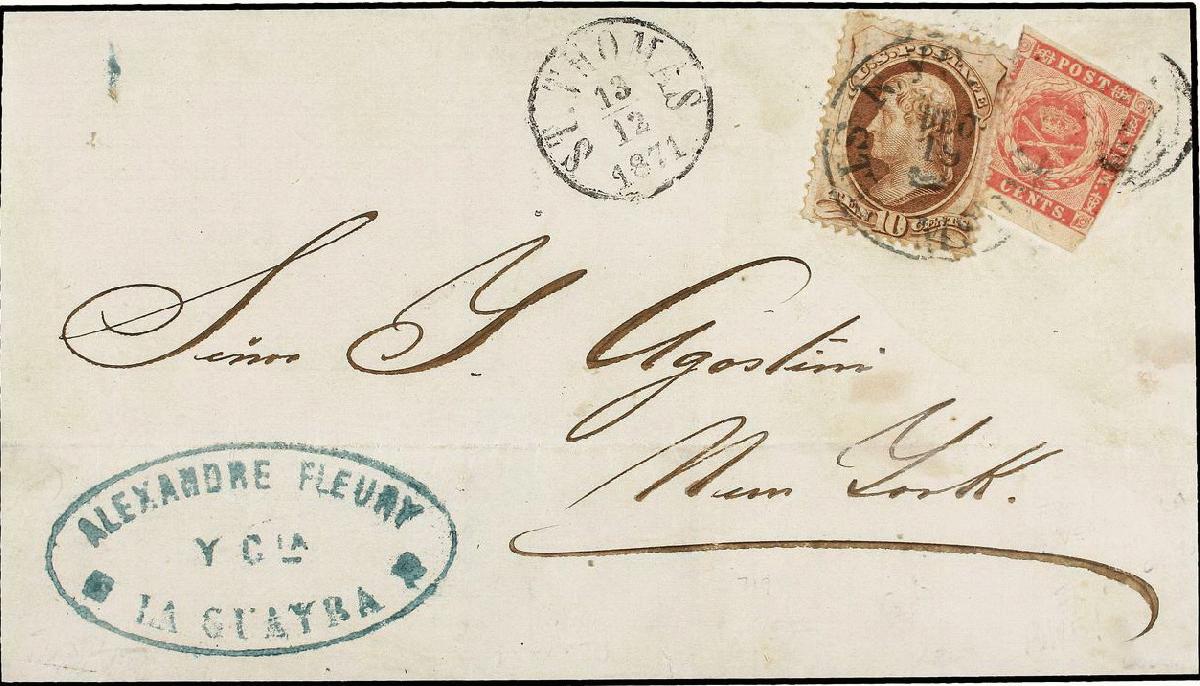 ST. THOMAS
13
12
1871
U.S. POSTAGE
TEN 10 CENTS
POST
CENTS.
DEC
19
Señor Y Agostini
New York.
ALEXANDRE FLEURY
Y CIA
LA GUAYRA